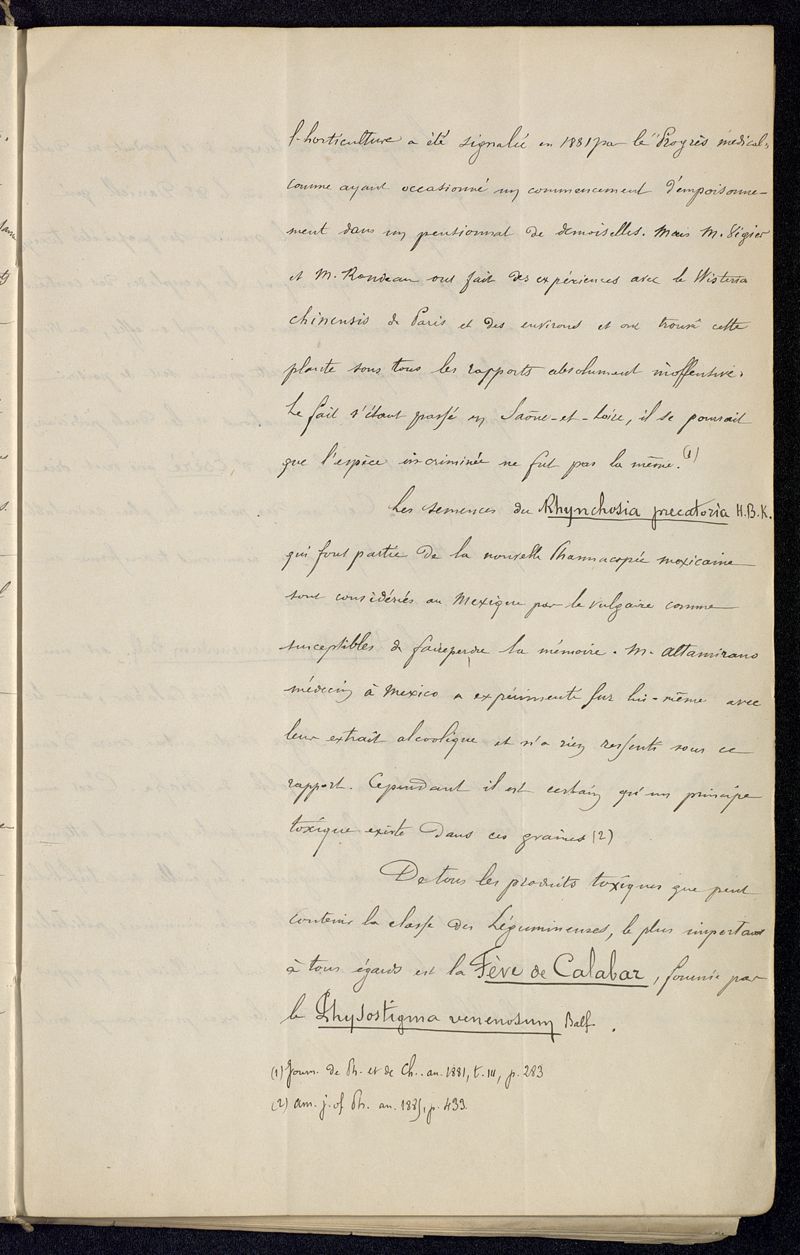 l'horticulture a été signalée en 1881 par le "Progrès médical"
comme ayant occasionné un commencement d'empoisonne-
ment dans un pensionnat de demoiselles. Mais M.
et M. Rondeau ont fait des expériences avec le Wisteria
chinensis de Paris et des environs et ont trouvé cette
plante sous tous les rapports absolument inoffensive.
Le fait s'étant passé en Saône-et-Loire, il se pourrait
que l'espèce incriminée ne fut pas la même. (1)
Les semences du Rhynchosia precatoria H.B.K.
qui font partie de la nouvelle Pharmacopée mexicaine
sont considérées au Mexique par le vulgaire comme
susceptibles de faire perdre la mémoire. M. Altamirano
médecin à Mexico a expérimenté sur lui-même avec
leur extrait alcoolique et n'a rien ressenti sous ce
rapport. Cependant il est certain qu'un principe
toxique existe dans ces graines (2)
De tous les produits toxiques que peut
contenir la classe des Légumineuses, le plus important
à tous égards est la Fève de Calabar, fournie par
le Physostigma venenosum Balf.
(1) Journ. de Ph. et de Ch. . an. 1881, t. III, p. 283
(2) Am. j. of Ph. an. 1885, p. 433